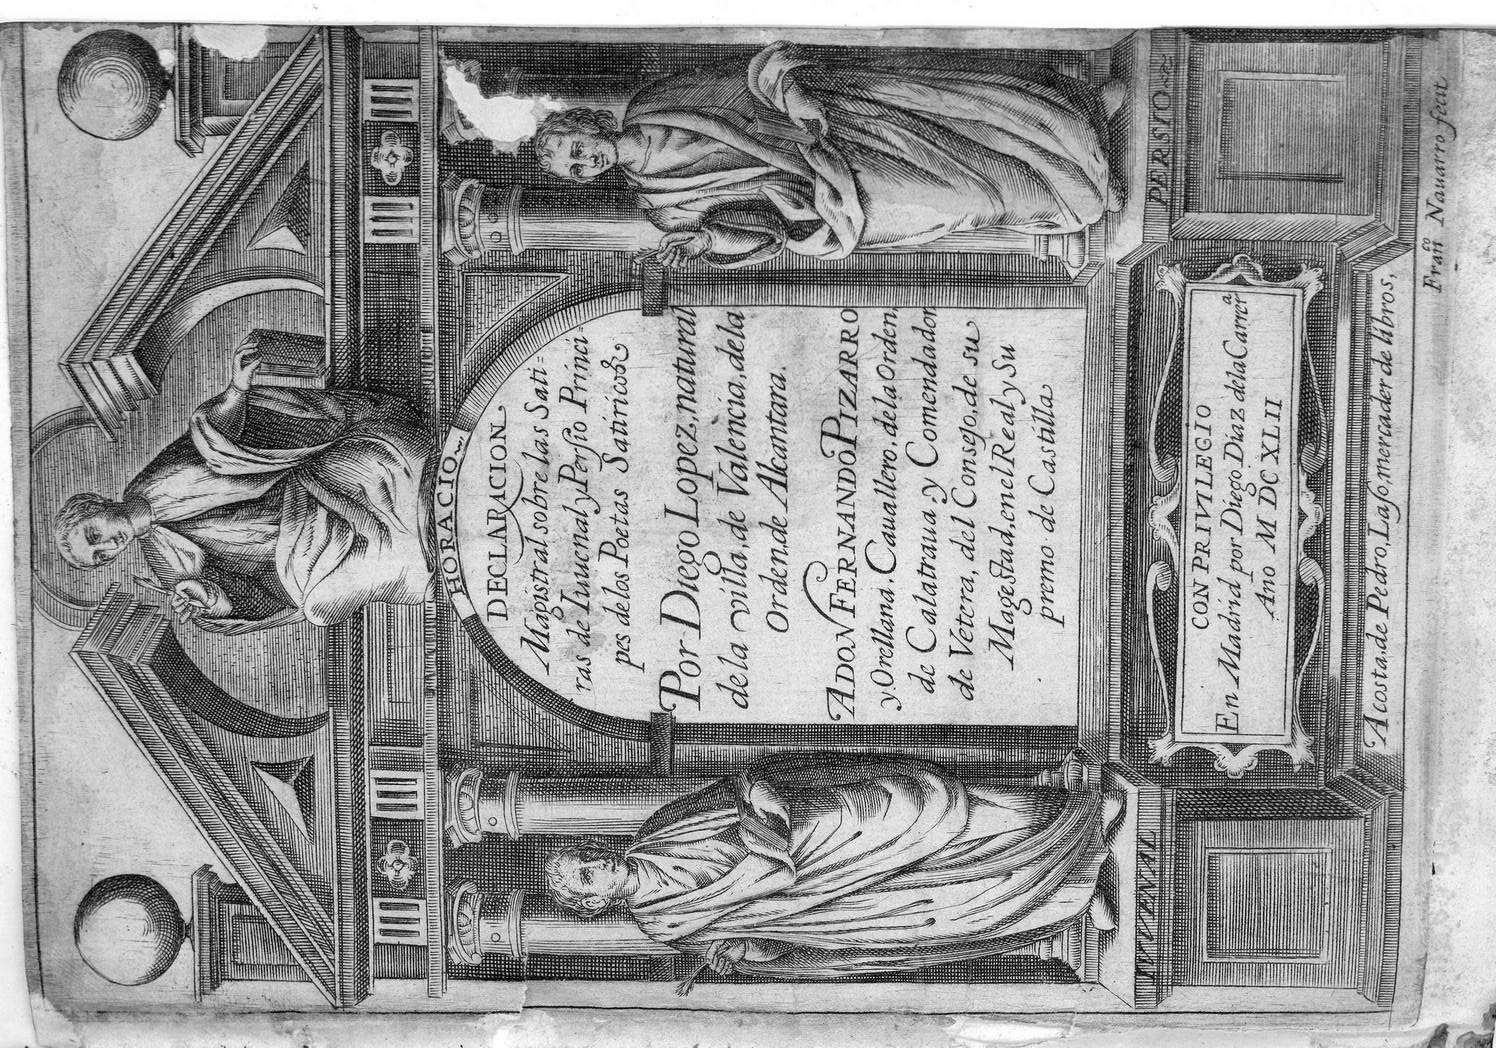 HORACIO
DECLARACION
Magistral, sobre las Sati=
ras de Iuuenal, y Persio Princi=
pes de los Poetas Satiricos
Por Diego Lopez, natural
de la villa, de Valencia, de la
Orden, de Alcantara.
A DON FERNANDO PIZARRO
y Orellana, Cauallero, de la Orden,
de Calatraua y Comendador
de Vetera, del Consejo, de su
Magestad, en el Real y Su
premo de Castilla
IVVENAL
PERSIO
CON PRIVILEGIO
En Madrid por Diego Diaz de la Carrerª
Año M DC XLII
Acosta, de Pedro, Laso, mercader de libros,
Franco Nauarro fecit